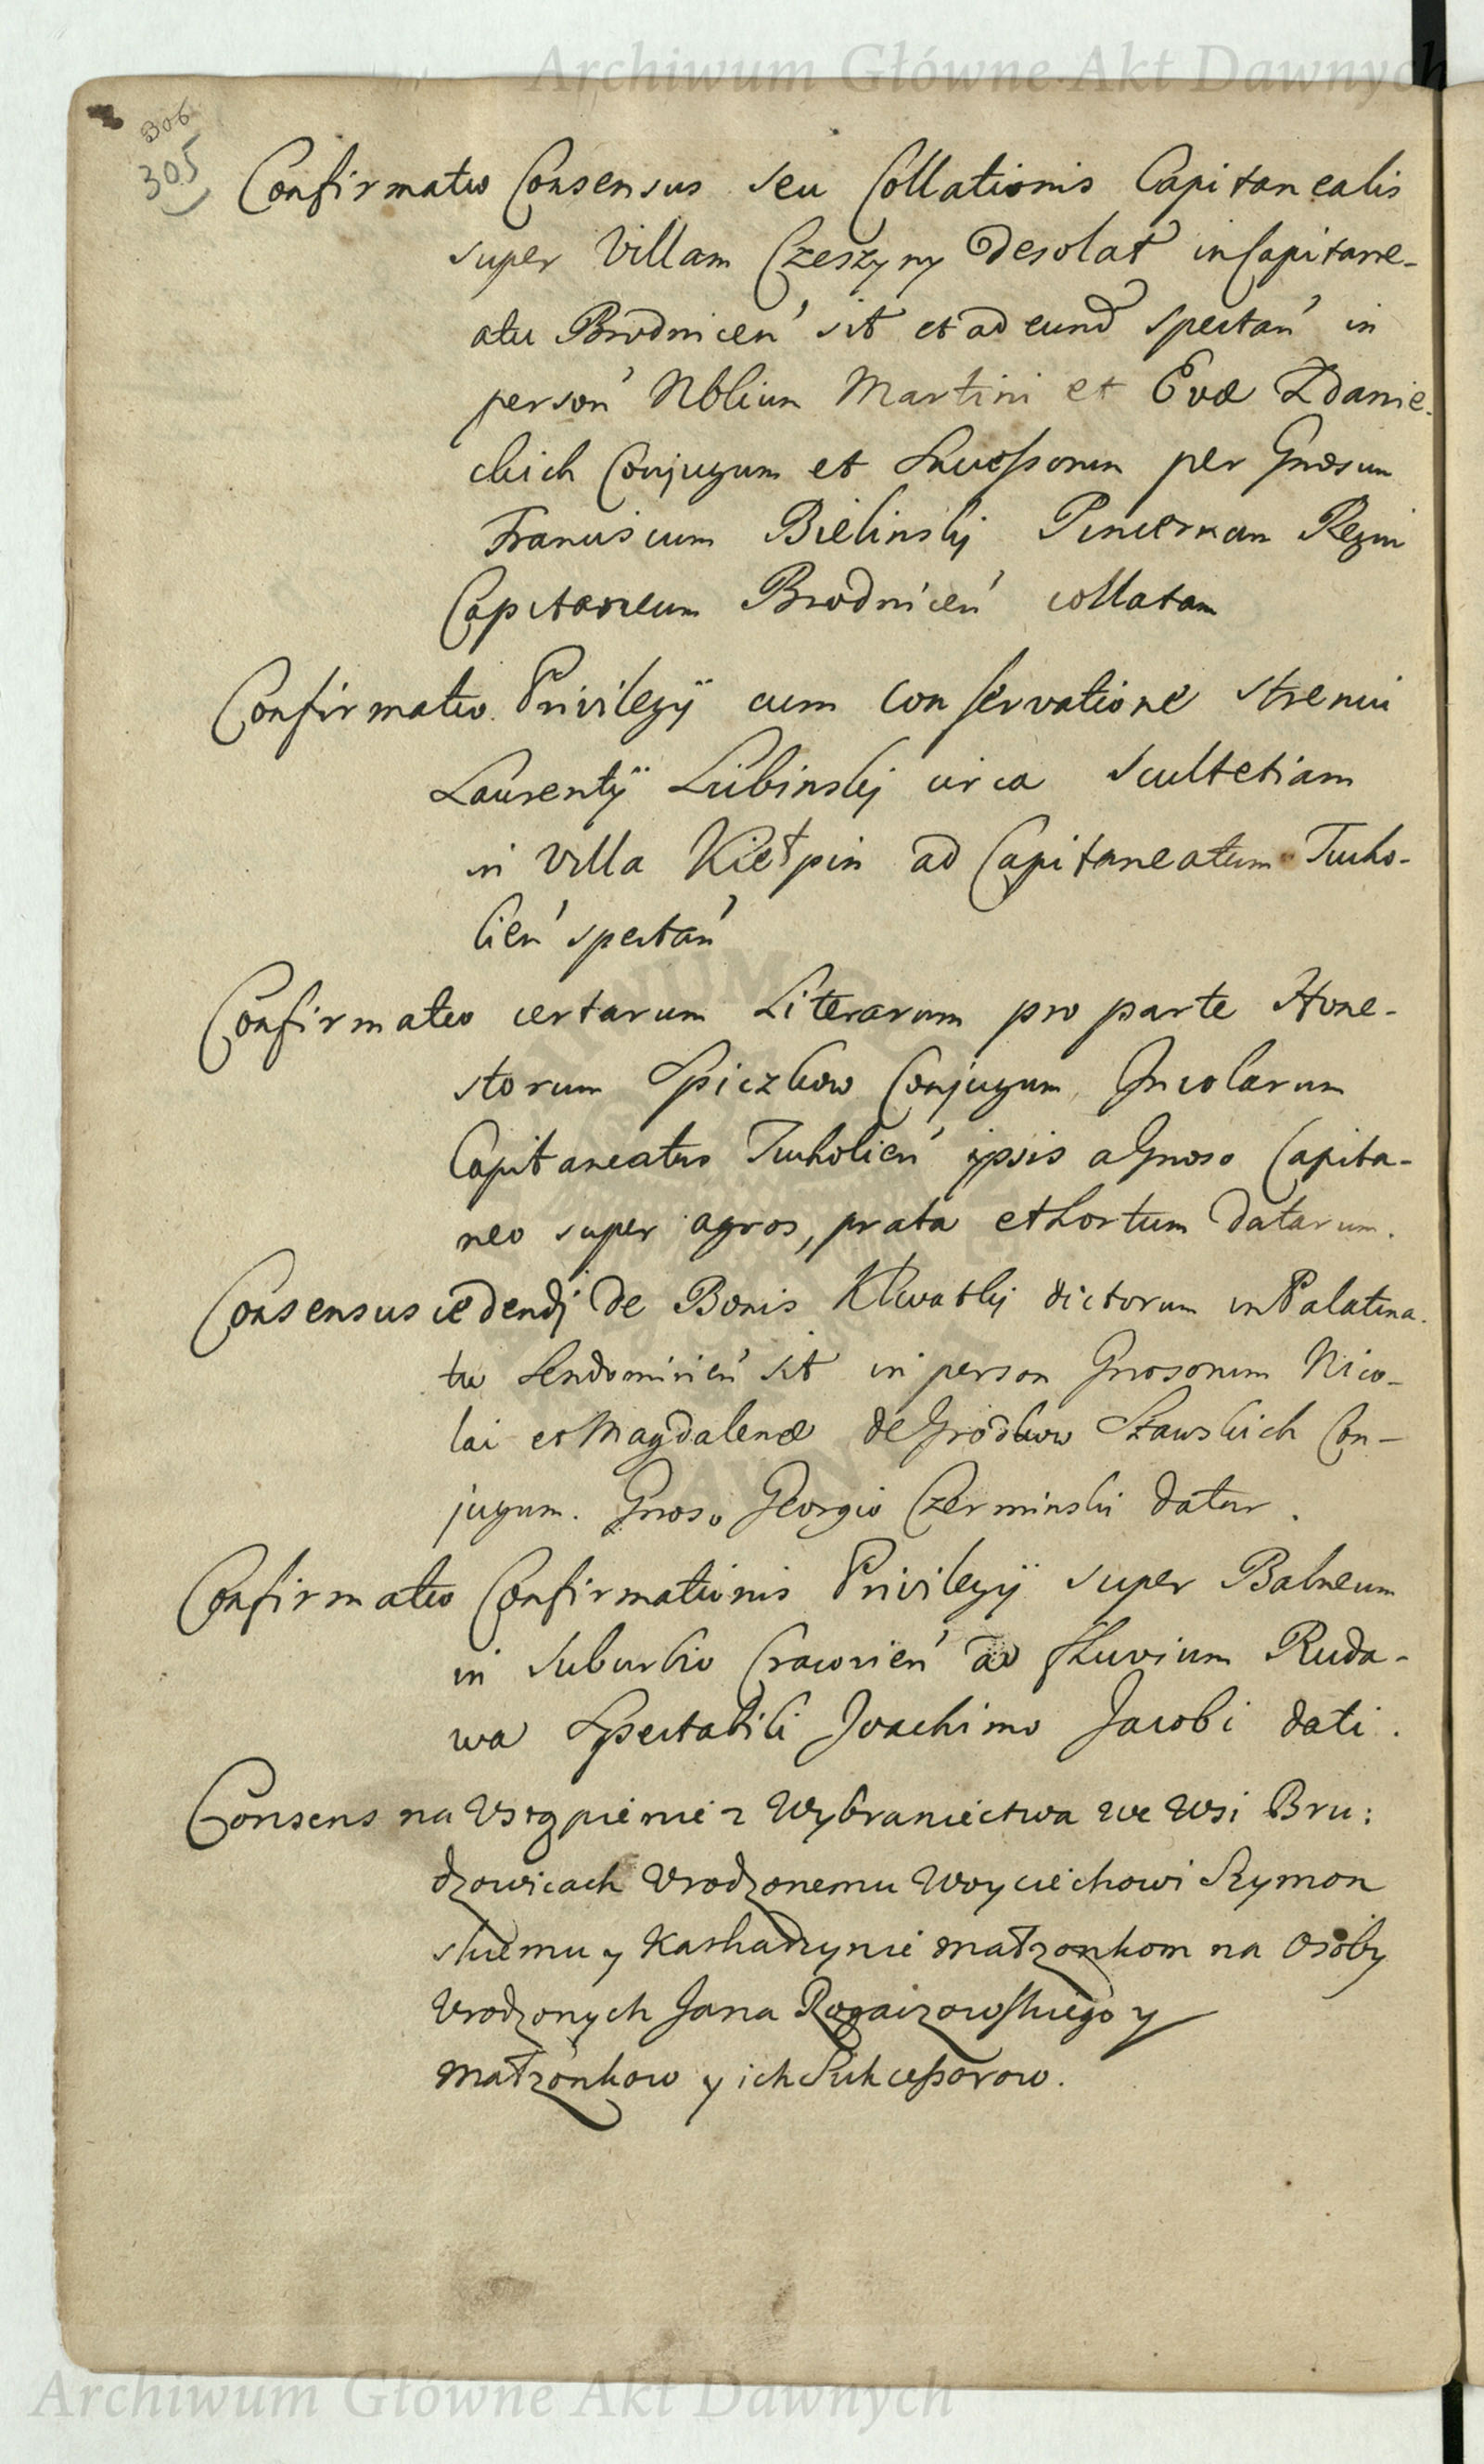 Archiwum Główne Akt Dawnych
306
305
Confirmatio Consensus seu Collationis Capitanealis
super Villam Czeszyny desolat in Capitane-
atu Brodnicen' sit et ad eund spectan' in
person' Nblium Martini et Evæ Zdanie-
ckich Conjugum et Successorum per Gnosum
Franciscum Bielinskj Pincernam Regni
Capitaneum Brodnicen' collatam
Confirmatio Privilegÿ cum conservatione strenui
Laurentÿ Lubinskj circa Scultetiam
in Villa Kiełpin ad Capitaneatum Tucho-
lien' spectan'
Confirmatio certarum Literarum pro parte Hone-
storum Spiczkow Conjugum, Incolarum
Capitaneatus Tucholien' ipsis a Gnoso Capita-
neo super agros, prata et hortum datarum.
Consensus cedendj de Bonis Klwatkj dictorum in Palatina-
tu Sendomirien' sit in person Gnosorum Nico-
lai et Magdalenæ de Grodkow Stawskich Con-
jugum. Gnoso Georgio Czerminski datur.
Confirmatio Confirmationis Privilegÿ super Balneum
in Suburbio Cracovien' ad fluvium Ruda-
wa Spectabili Joachimo Jacobi dati.
Consens na Vstąpienie z Wybraniectwa we Wsi Bru:
dzowicach Vrodzonemu Woyciechowi Szymon
skiemu y Katharzynie małzonkom na Osoby
Vrodzonych Jana y
małzonkow y ich Sukcessorow.
Archiwum Główne Akt Dawnych